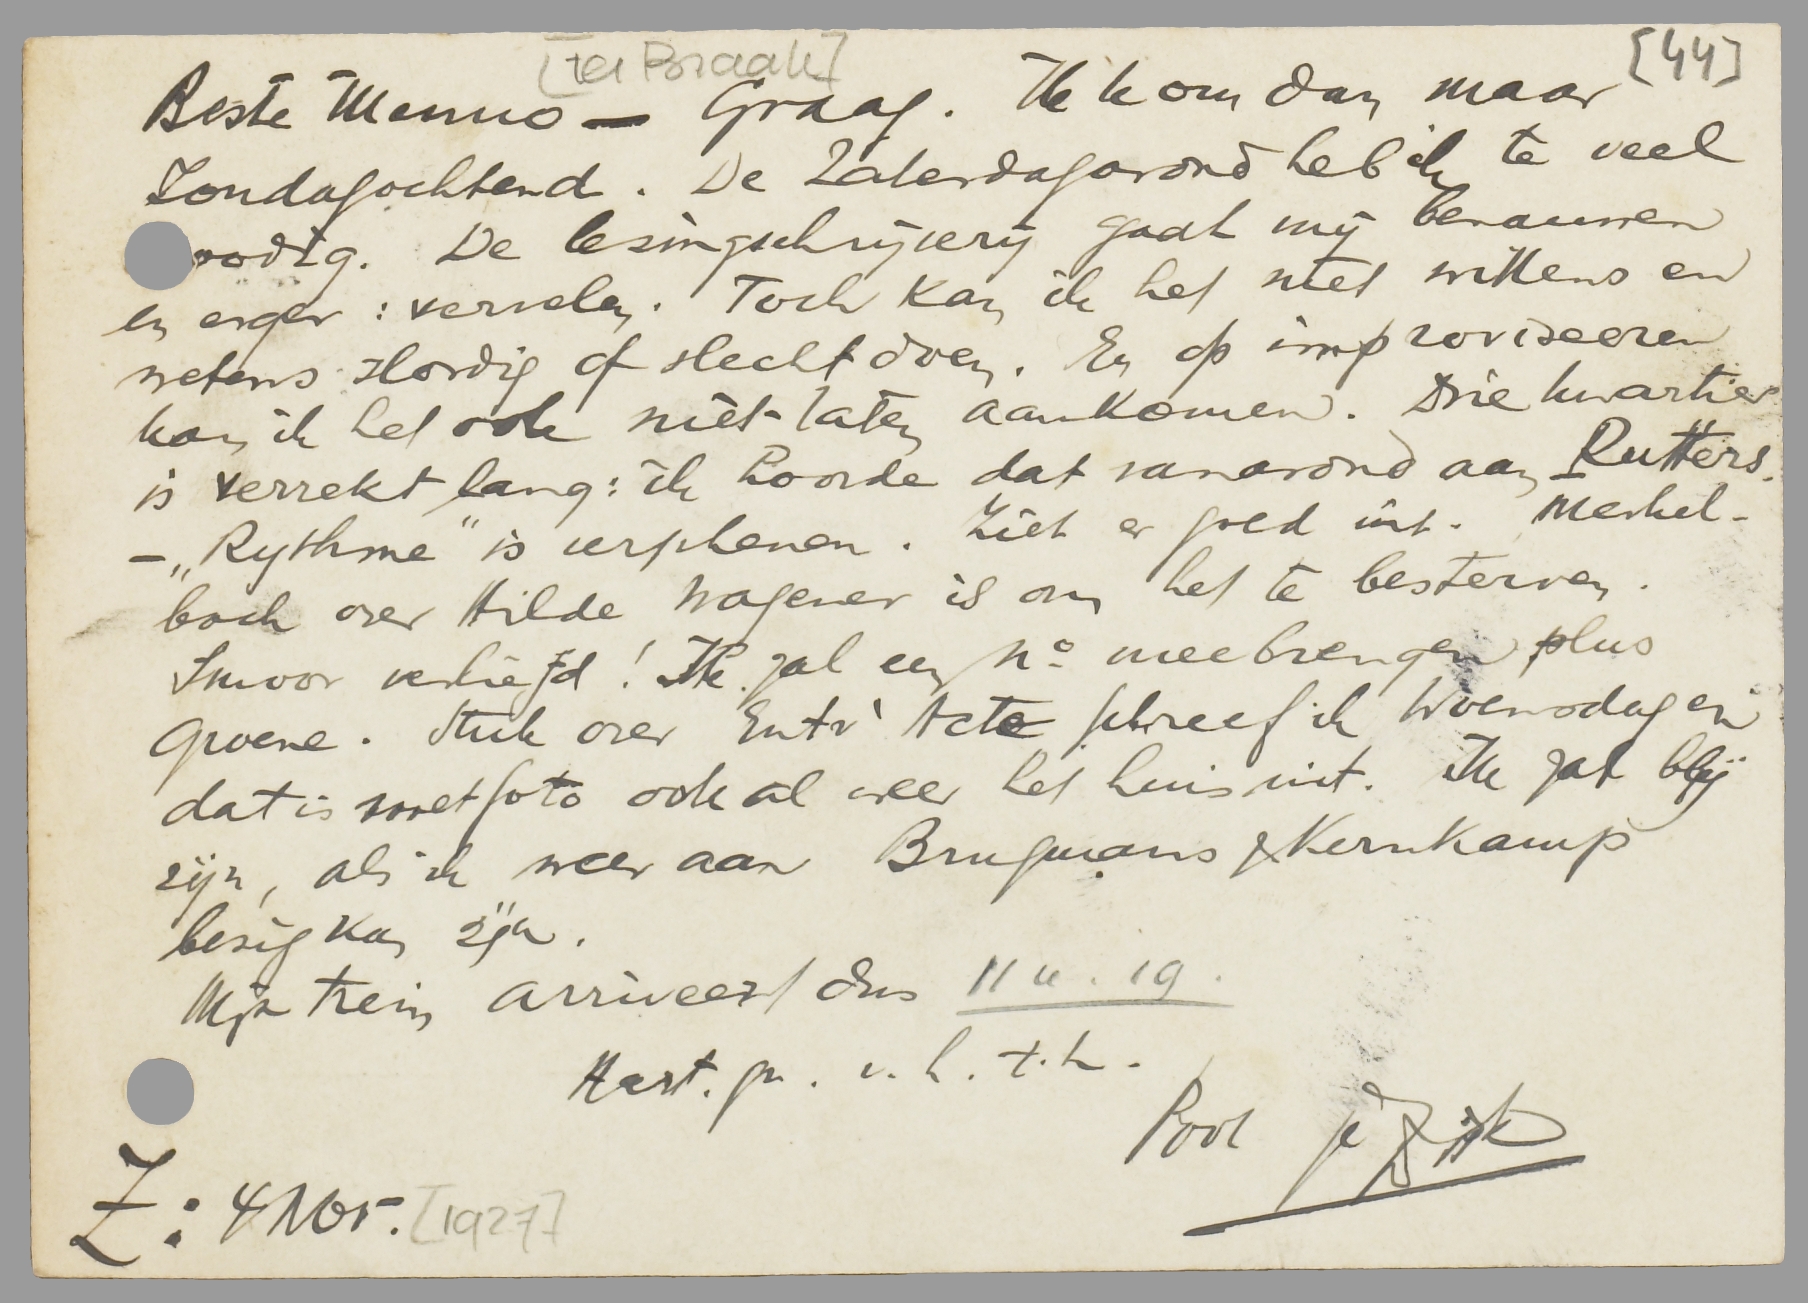 [ter Braak] [44]
Beste Menno — Graag. Ik kom dan maar
Zondagochtend. De Zaterdagavond heb ik te veel
noodig. De lezingschrijverij gaat mij benauwen
en erger: vervelen. Toch kan ik het niet willens en
wetens slordig of slecht doen. En op improviseeren
kan ik het ook niet laten aankomen. Drie kwartier
is verrekt lang: ik hoorde dat vanavond aan Rutters.
— „Rythme" is verschenen. Ziet er goed uit. Merkel-
bach over Hilde Wagener is om het te besterven.
Smoor verliefd! Ik zal een No meebrengen plus
Groene. Stuk over Entr'Acte schreef ik Woensdag en
dat is met foto ook al weer het huis uit. Ik zal blij
zijn, als ik weer aan Brugmans & Kernkamp
bezig kan zijn.
Mijn trein arriveert dus 11 u. 19.
Hart. gr. v. h. t. h.
Z: 4 Nov. [1927]